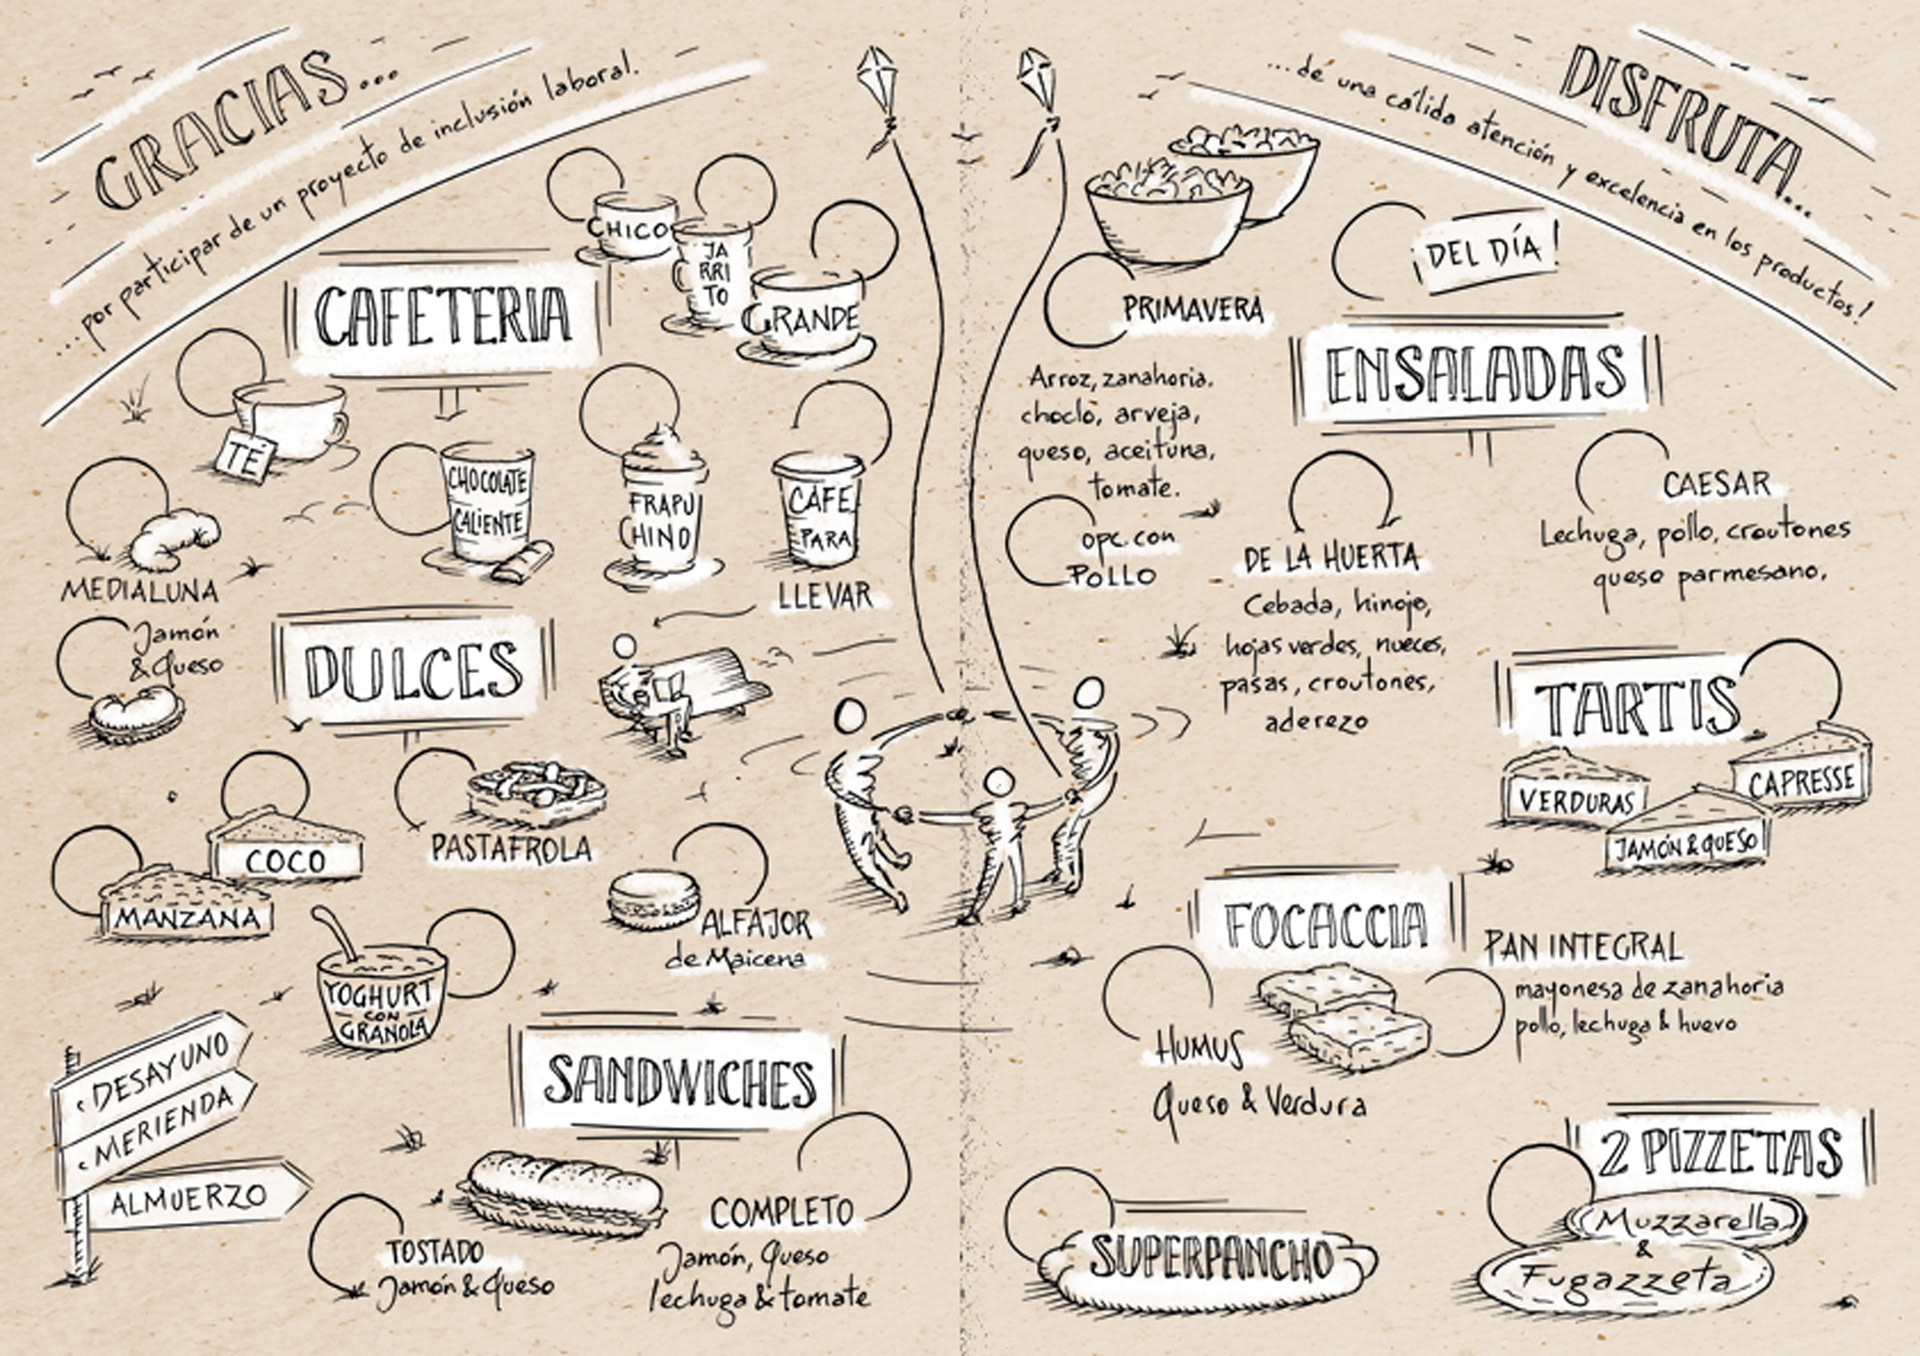 GRACIAS...
....por participar de un proyecto de inclusión laboral.
CHICO
JA
RRI
TO
GRANDE
CAFETERIA
TÉ
CHOCOLATE
CALIENTE
FRAPU
CHINO
CAFE
PARA
LLEVAR
MEDIALUNA
Jamón
& Queso
DULCES
PASTAFROLA
COCO
MANZANA
ALFAJOR
de Maicena
YOGHURT
CON
GRANOLA
DESAYUNO
MERIENDA
ALMUERZO
SANDWICHES
TOSTADO
Jamón & Queso
COMPLETO
Jamón, Queso
lechuga & tomate
DISFRUTA...
...de una cálida atención y excelencia en los productos!
¡DEL DÍA!
PRIMAVERA
Arroz, zanahoria.
choclo, arveja,
queso, aceituna,
tomate.
opc. con
POLLO
ENSALADAS
DE LA HUERTA
Cebada, hinojo,
hojas verdes, nueces,
pasas, croutones,
aderezo
CAESAR
Lechuga, pollo, croutones
queso parmesano.
TARTIS
VERDURAS
CAPRESSE
JAMÓN & QUESO
FOCACCIA
PAN INTEGRAL
mayonesa de zanahoria
pollo, lechuga & huevo
HUMUS
Queso & Verdura
SUPERPANCHO
2 PIZZETAS
Muzzarella
&
Fugazzeta